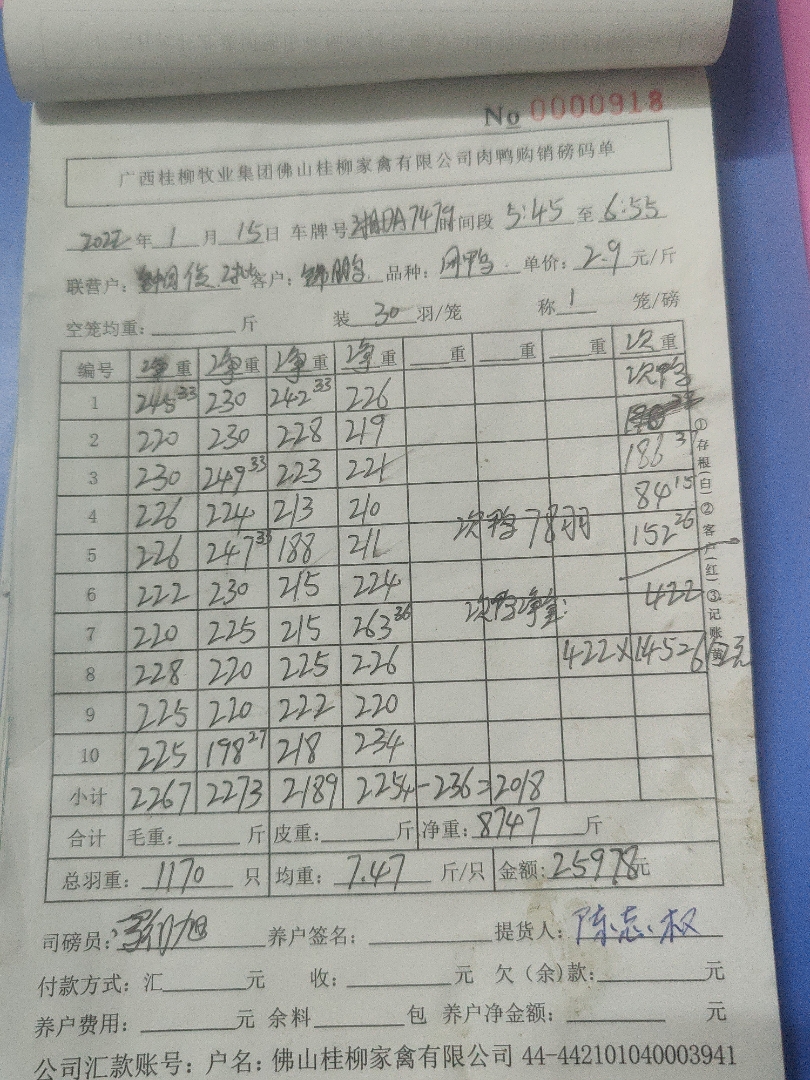 No 0000918
广西桂柳牧业集团佛山桂柳家禽有限公司肉鸭购销磅码单
2022年1月15日 车牌号湘DA7479时间段 5:45 至 6:55
联营户: 客户: 品种: 单价:2.9元/斤
空笼均重: 斤 装30羽/笼 称1笼/磅
编号 净重 净重 净重 净重 重 重 重 次重
1 245 33 230 242 33 226 次鸭
2 220 230 228 219
3 230 249 33 223 221 186 37
4 226 224 213 210 84 15
5 226 247 33 188 211 次鸭78羽 152 26
6 222 230 215 224 422
7 220 225 215 263 36 次鸭净重:
8 228 220 225 226 422×1.45=612元
9 225 220 222 220
10 225 198 27 218 234
小计 2267 2273 2189 2254-236=2018
合计 毛重: 斤 皮重: 斤 净重:8747斤
总羽重:1170只 均重:7.47斤/只 金额:25978元
司磅员: 养户签名: 提货人:陈志权
付款方式:汇 元 收: 元 欠(余)款: 元
养户费用: 元 余料 包 养户净金额: 元
公司汇款账号:户名:佛山桂柳家禽有限公司 44-442101040003941
①存根(白)②客户(红)③记账(黄)